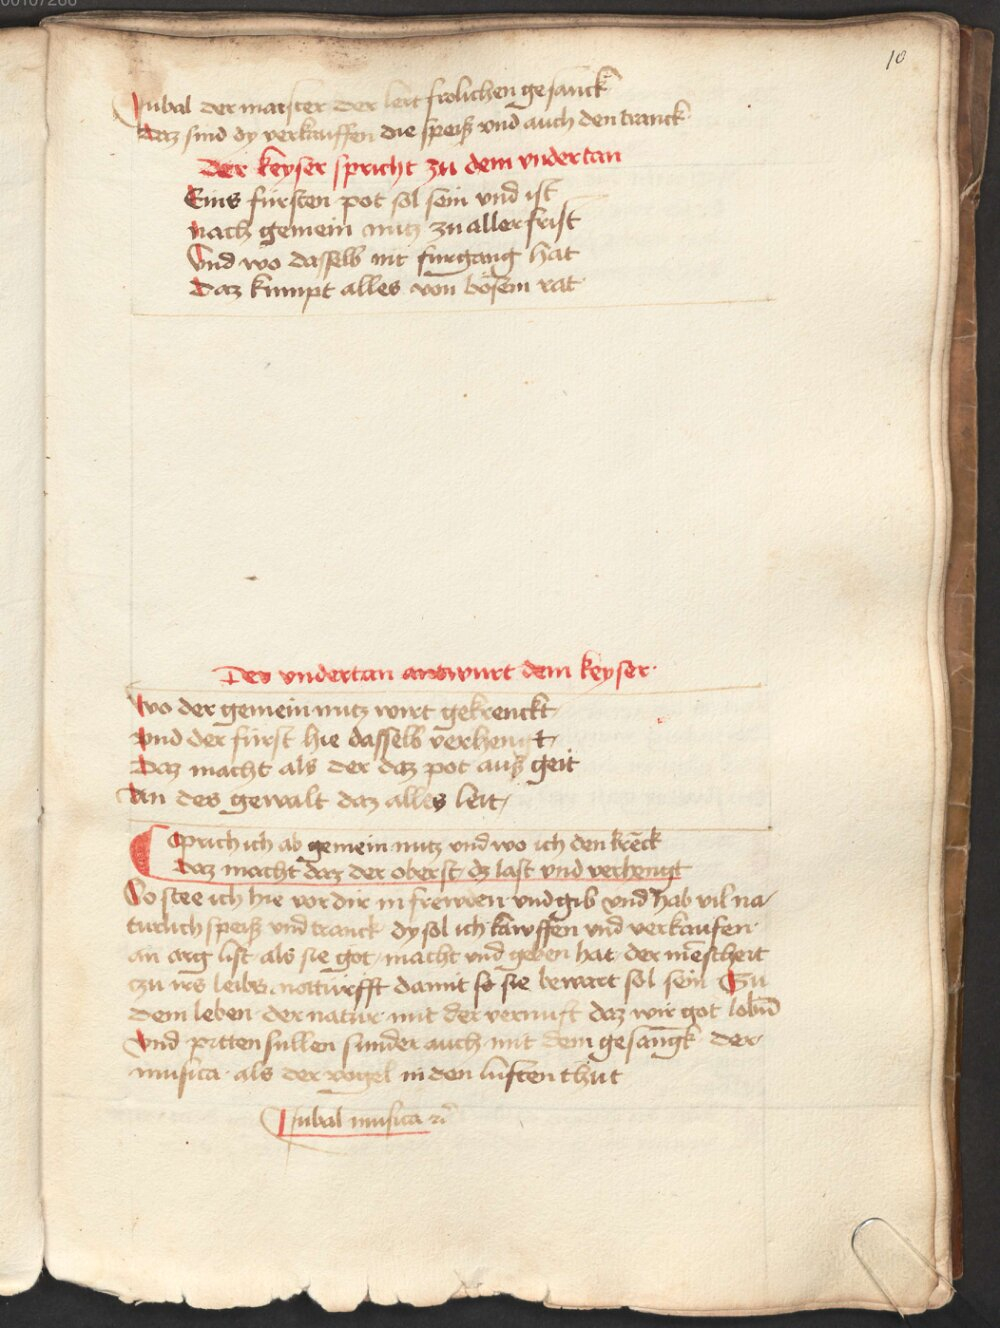 10
Jubal der maister der lert frolichen gesanck
Daz sind dy verkauffen die speiß vnd auch den tranck
Der keyser spricht zu dem vndertan
Eins fürsten pot sol sein vnd ist
nach gemein nutz zu aller frist
Vnd wo dasselb nit furgang hat
Daz kumpt alles von bösem rat
Des vndertan antwurt dem keyser
Wo der gemein nutz wirt gekrenckt
vnd der fürst hie dasselb verhengt
Daz macht als der daz pot auß geit
An des gewalt daz alles leit
Sprich ich ab gemein nutz vnd wo ich den krēck
Daz macht daz der oberst dz last vnd verhengt
So stee ich hie vor dir in frewden vnd gib vnd hab vil na
turlich speiß vnd tranck dy sol ich kawffen vnd verkaufen
an arg list als sie got macht vnd geben hat der mēscheit
zu irs leibs notturfft damit so sie bewart sol sein Zu
dem leben der natur mit der vernuft daz wir got lobn̄
Vnd pitten sullen sunder auch mit dem gesangk der
musica als der vogel in den lüften thut
Jubal musica